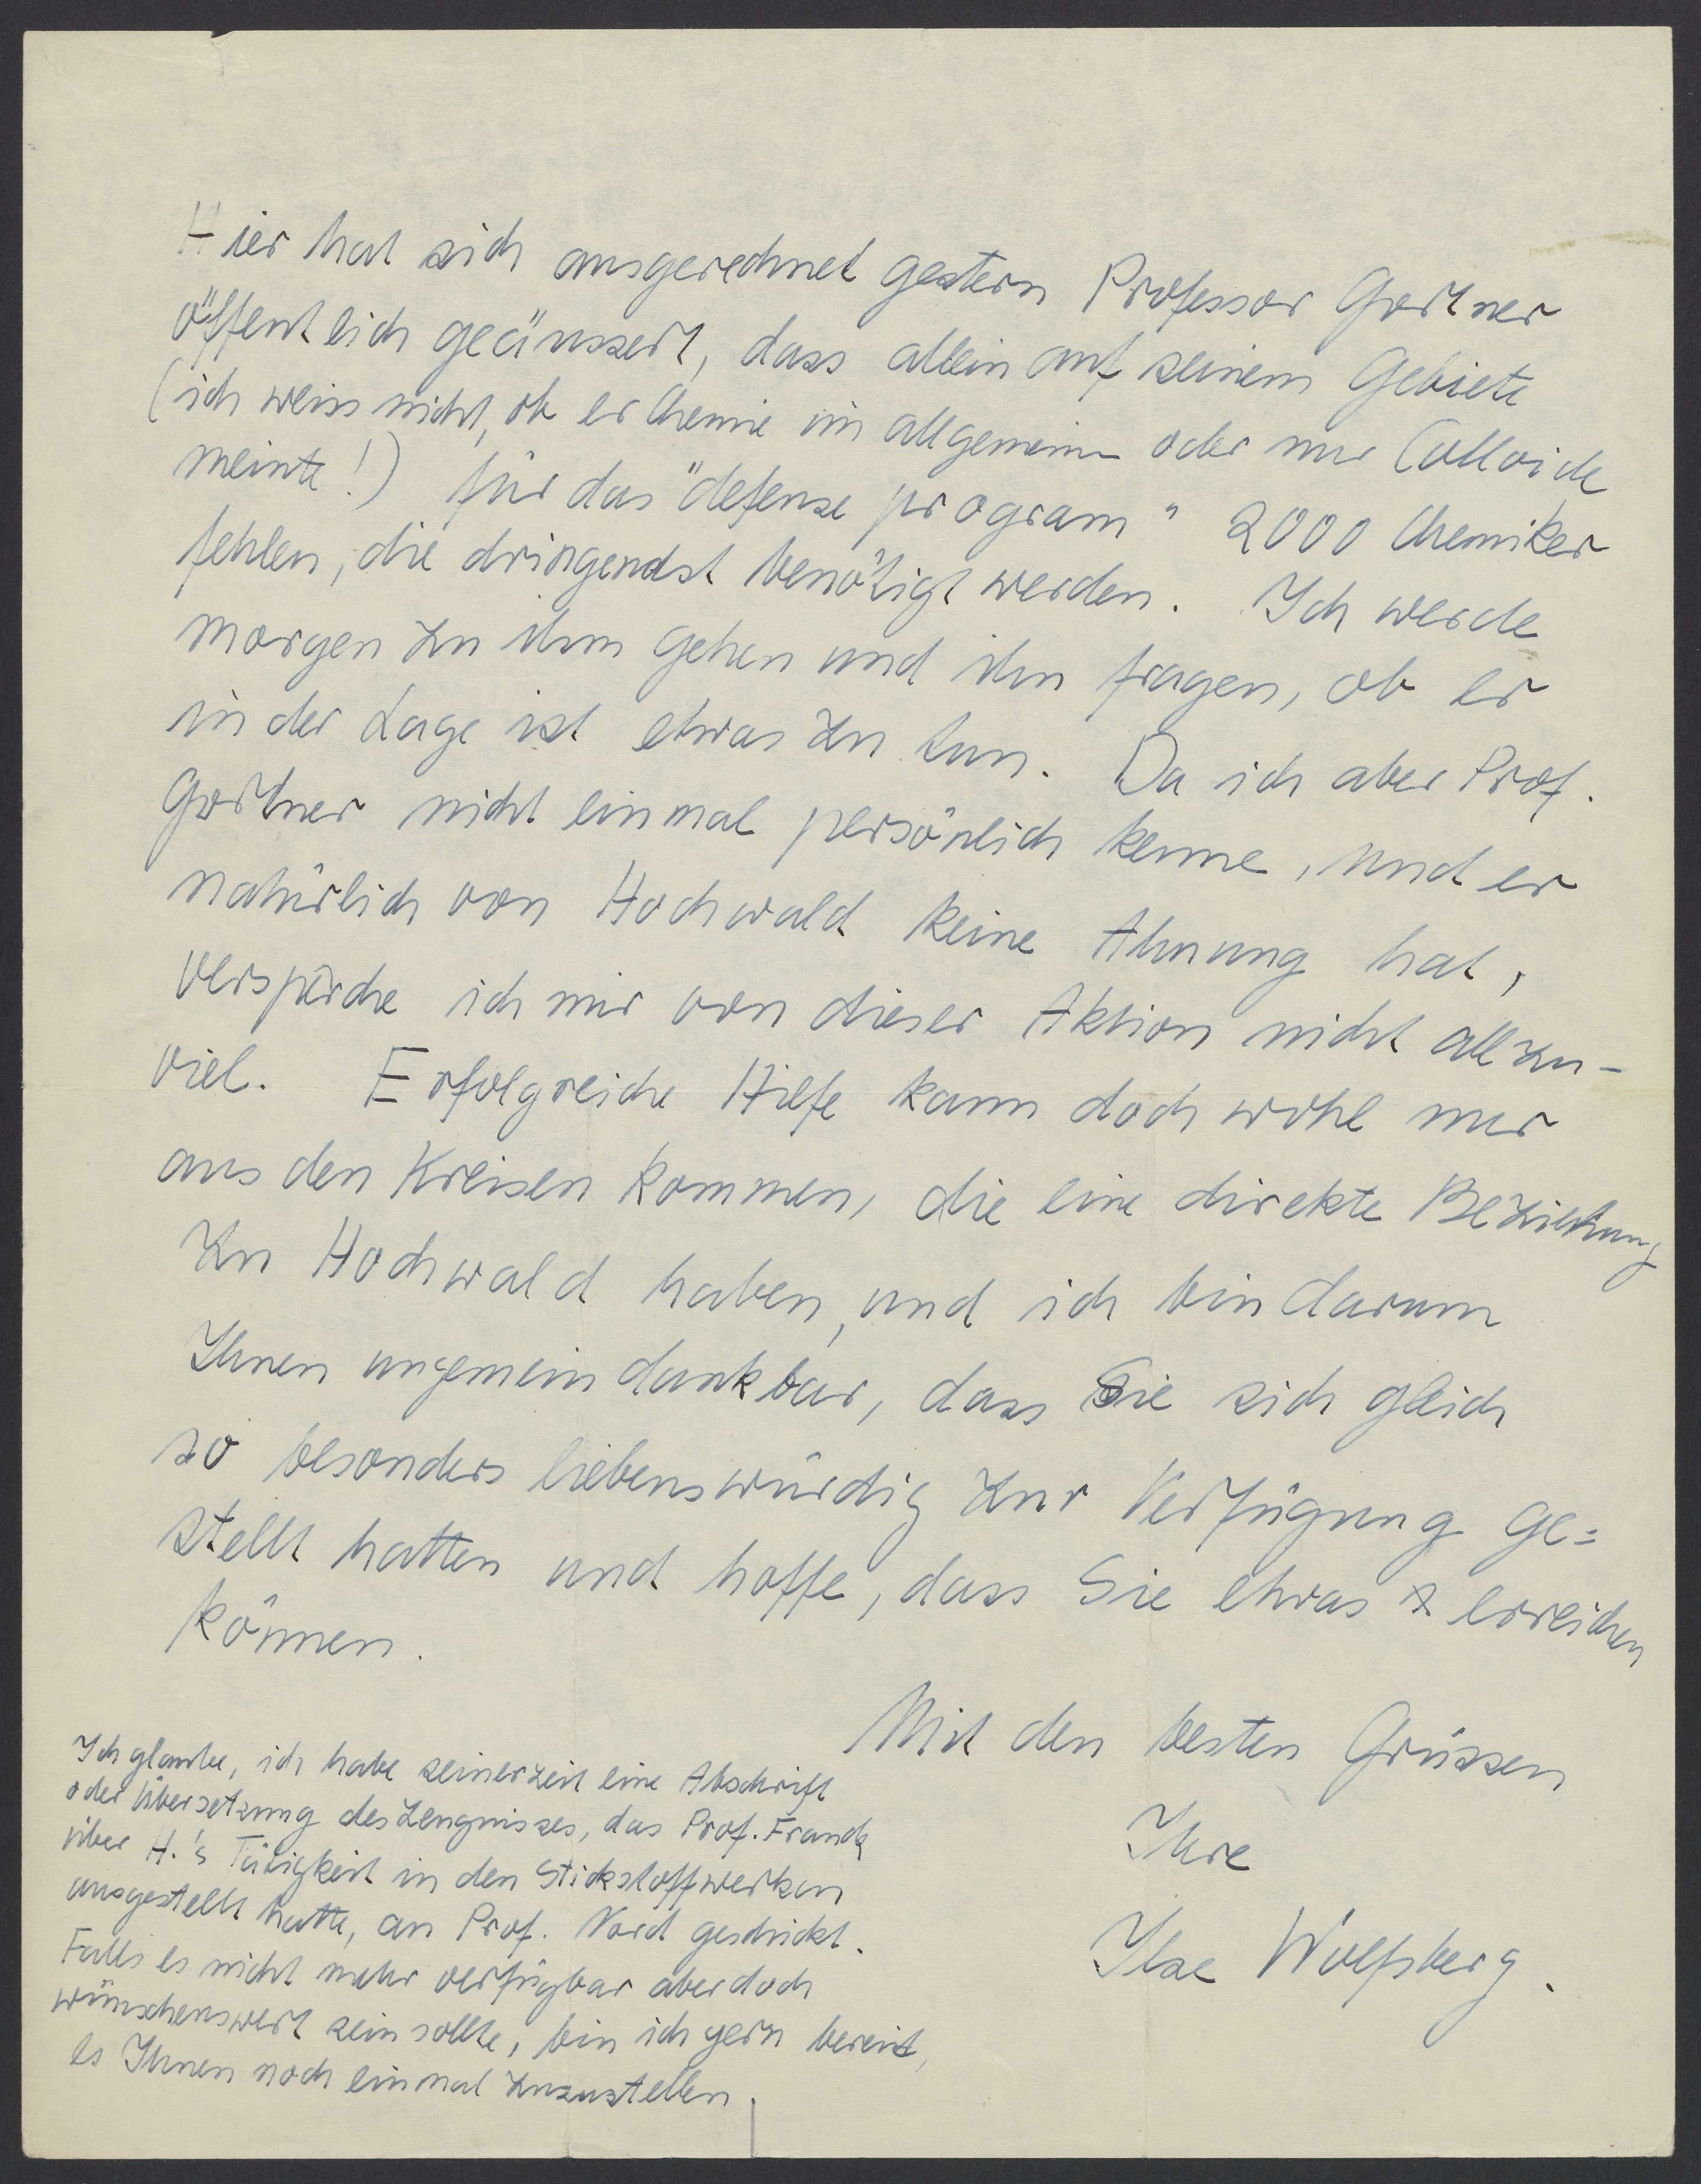 Hier hat sich ausgerechnet gestern Professor Gortner
öffentlich geäussert, dass allein auf seinem Gebiete
(ich weiss nicht, ob er Chemie im allgemeinen oder nur Colloide
meinte!) für das "defense program" 2000 Chemiker
fehlen, die dringendst benötigt werden. Ich werde
morgen zu ihm gehen und ihn fragen, ob er
in der Lage ist etwas zu tun. Da ich aber Prof.
Gortner nicht einmal persönlich kenne, und er
natürlich von Hochwald keine Ahnung hat,
verspreche ich mir von dieser Aktion nicht allzu-
viel. Erfolgreiche Hilfe kann doch wohl nur
aus den Kreisen kommen, die eine direkte Beziehung
zu Hochwald haben, und ich bin darum
Ihnen ungemein dankbar, dass Sie sich gleich
so besonders liebenswürdig zur Verfügung ge=
stellt hatten und hoffe, dass Sie etwas erreichen
können.
Mit den besten Grüssen
Ihre
Ilse Wolfsberg.
Ich glaube, ich habe seinerzeit eine Abschrift
oder Übersetzung des Zeugnisses, das Prof. Franck
über H.'s Tätigkeit in den Stickstoffwerken
ausgestellt hatte, an Prof. Nord geschickt.
Falls es nicht mehr verfügbar aber doch
wünschenswert sein sollte, bin ich gern bereit,
es Ihnen noch einmal zuzustellen.